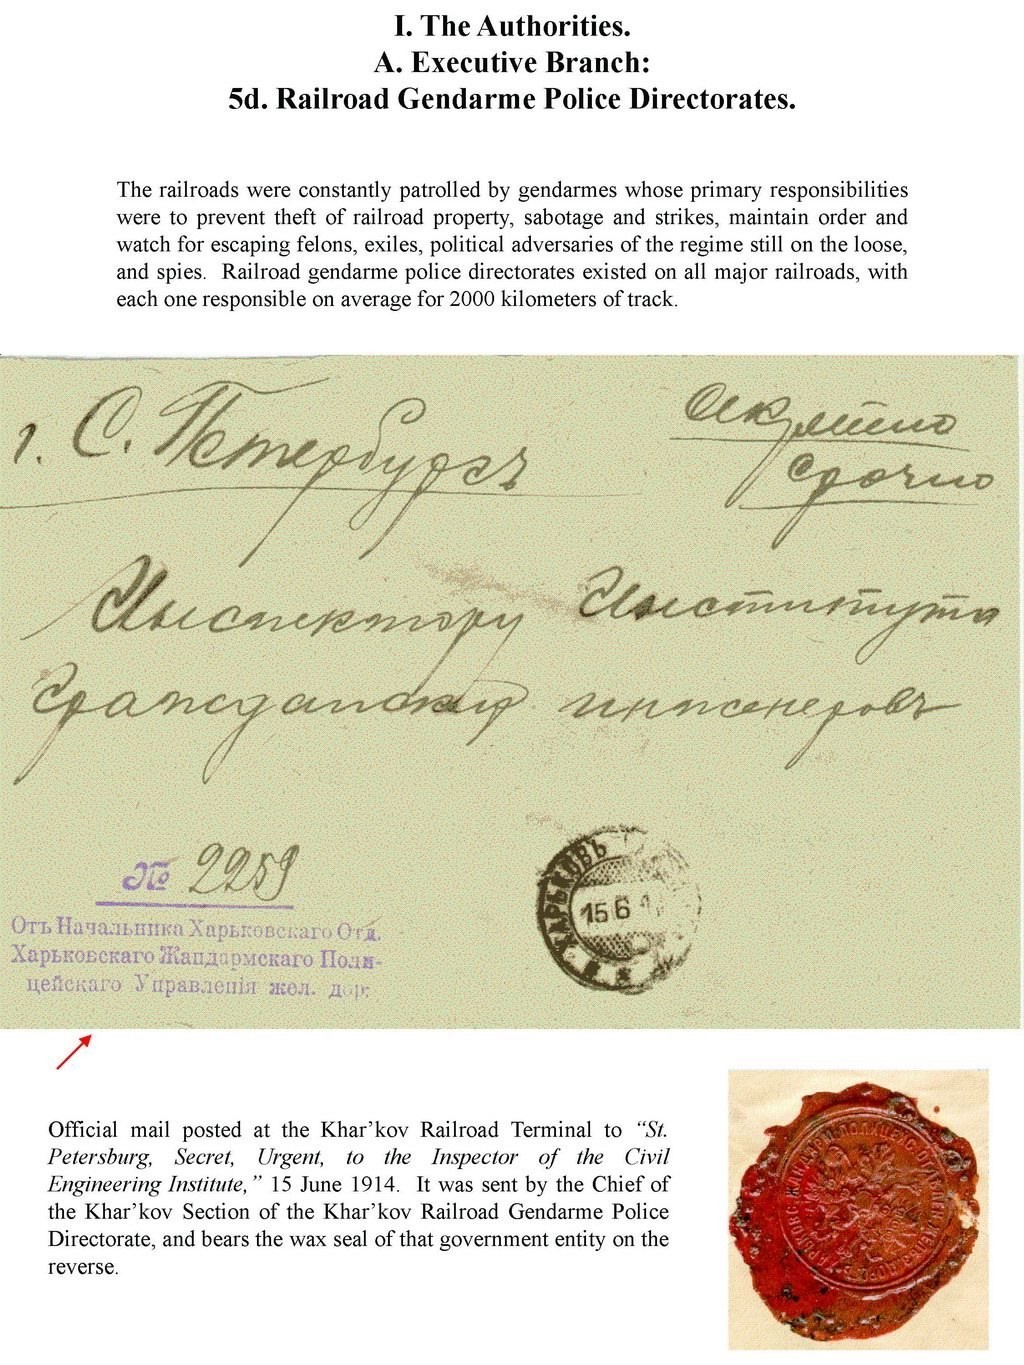 I. The Authorities.
A. Executive Branch:
5d. Railroad Gendarme Police Directorates.
The railroads were constantly patrolled by gendarmes whose primary responsibilities
were to prevent theft of railroad property, sabotage and strikes, maintain order and
watch for escaping felons, exiles, political adversaries of the regime still on the loose,
and spies. Railroad gendarme police directorates existed on all major railroads, with
each one responsible on average for 2000 kilometers of track.
г. С. Петербургъ
Секретно
Срочно
Инспектору Института
Гражданских инженеровъ
№ 2259
Отъ Начальника Харьковскаго Отд.
Харьковскаго Жандармскаго Поли-
цейскаго Управленія жел. дор.
ХАРЬКОВЪ
15 6
Official mail posted at the Khar’kov Railroad Terminal to “St.
Petersburg, Secret, Urgent, to the Inspector of the Civil
Engineering Institute,” 15 June 1914. It was sent by the Chief of
the Khar’kov Section of the Khar’kov Railroad Gendarme Police
Directorate, and bears the wax seal of that government entity on the
reverse.